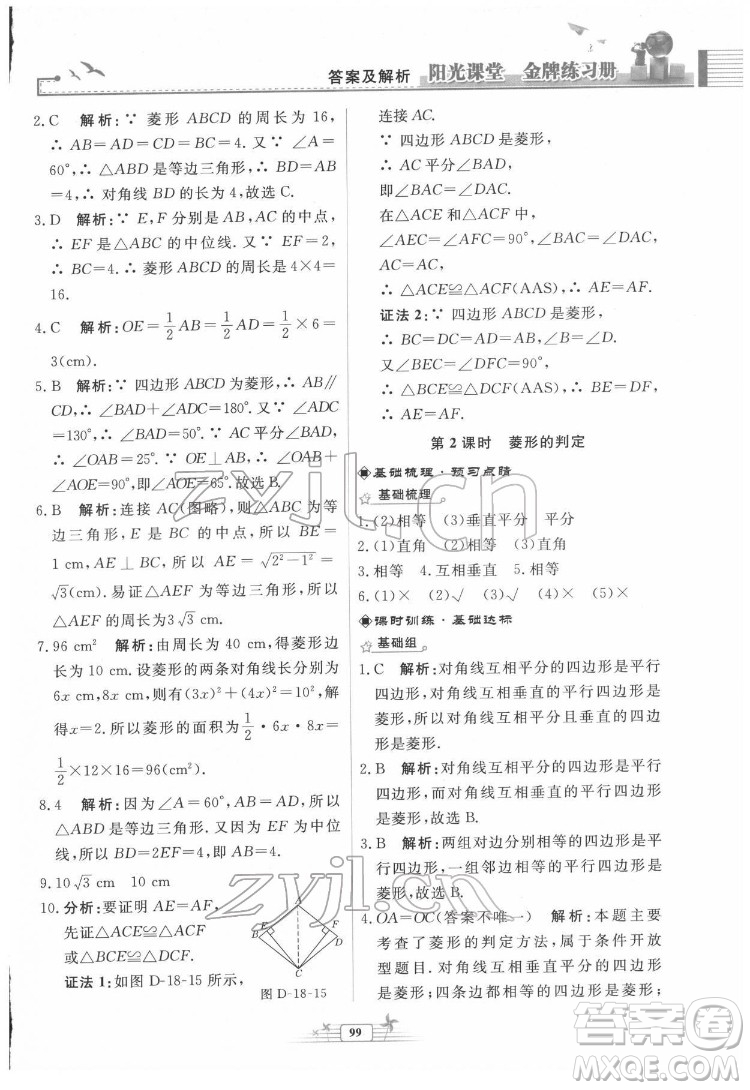 答案及解析 阳光课堂 金牌练习册
2.C 解析:∵ 菱形 ABCD 的周长为 16,
∴ AB=AD=CD=BC=4. 又∵ ∠A=
60°,∴ △ABD 是等边三角形,∴ BD=
AB=4,∴ 对角线 BD 的长为 4,故选 C.
3.D 解析:∵ E,F 分别是 AB,AC 的中点,
∴ EF 是△ABC 的中位线,∴ BC=2EF=
4,∴ 菱形 ABCD 的周长是 4×4=
16.
4.C 解析:OE=1/2AB=1/2AD=1/2×6=
3(cm).
5.B 解析:∵ 四边形 ABCD 为菱形,∴ AB∥
CD,∴ ∠BAD+∠ADC=180°. 又∵ ∠ADC
=130°,∴ ∠BAD=50°. ∵ AO 平分∠BAD,
∴ ∠OAB=25°. ∵ OE⊥AB,∴ ∠OAB+
∠AOE=90°,即∠AOE=65°. 故选 B.
6.B 解析:连接 AC(图略),则△ABC 为等
边三角形,E 是 BC 的中点,所以
AE⊥BC,所以 AE=√(2²-1²)=
√3(cm). 易证△AEF 为等边三角形,所以
△AEF 的周长为3√3 cm.
7.96 cm² 解析:由周长为 40 cm,得菱形边长
10 cm. 设菱形的两条对角线长分别为
6x cm,8x cm,则(3x)²+(4x)²=10²,解
得x=2. 所以菱形的面积为1/2·6x·8x=
1/2×12×16=96(cm²).
8.4 解析:因为∠A=60°,AB=AD,所以
△ABD 是等边三角形. 又因为 EF 为中位
线,所以 BD=2EF=4,所以 AB=BD=4.
9.10√3 cm 10 cm
10.分析:要证明 AE=AF,
先证△ACE≌△ACF
或△BCE≌△DCF.
证法 1:如图 D-18-15 所示,
A
B
E
F
D
C
图 D-18-15
连接 AC.
∵ 四边形 ABCD 是菱形,
∴ AC 平分∠BAD,
即∠BAC=∠DAC.
在△ACE 和△ACF 中,
∠AEC=∠AFC=90°,∠BAC=∠DAC,
AC=AC,
∴ △ACE≌△ACF(AAS),∴ AE=AF.
证法 2:∵ 四边形 ABCD 是菱形,
∴ BC=DC=AD=AB,∠B=∠D.
又∵ ∠BEC=∠DFC=90°,
∴ △BEC≌△DFC(AAS),∴ BE=DF,
∴ AE=AF.
第 2 课时 菱形的判定
基础梳理·预习点睛
基础梳理
1.(2)相等 (3)垂直平分 平分
2.(1)直角 (2)相等 (3)直角
3.相等 4.互相垂直 5.相等
6.(1)× (2)√ (3)√ (4)× (5)×
课时训练·基础达标
基础组
1.C 解析:对角线互相平分的四边形是平行
四边形,对角线互相垂直的平行四边形是
菱形,所以对角线互相平分且垂直的四边
形是菱形.
2.B 解析:对角线互相平分的四边形是平行
四边形,对角线互相垂直的平行四边形是
菱形,故选 B.
3.B 解析:两组对边分别相等的四边形是平
行四边形,一组邻边相等的平行四边形是
菱形,故选 B.
4.OA=OC(答案不唯一) 解析:本题主要
考查了菱形的判定方法,属于条件开放
型题目. 对角线互相垂直平分的四边形
是菱形;四条边都相等的四边形是菱形;
99
zyjl.cn
zyjl.cn
答案圈
MXQE.COM